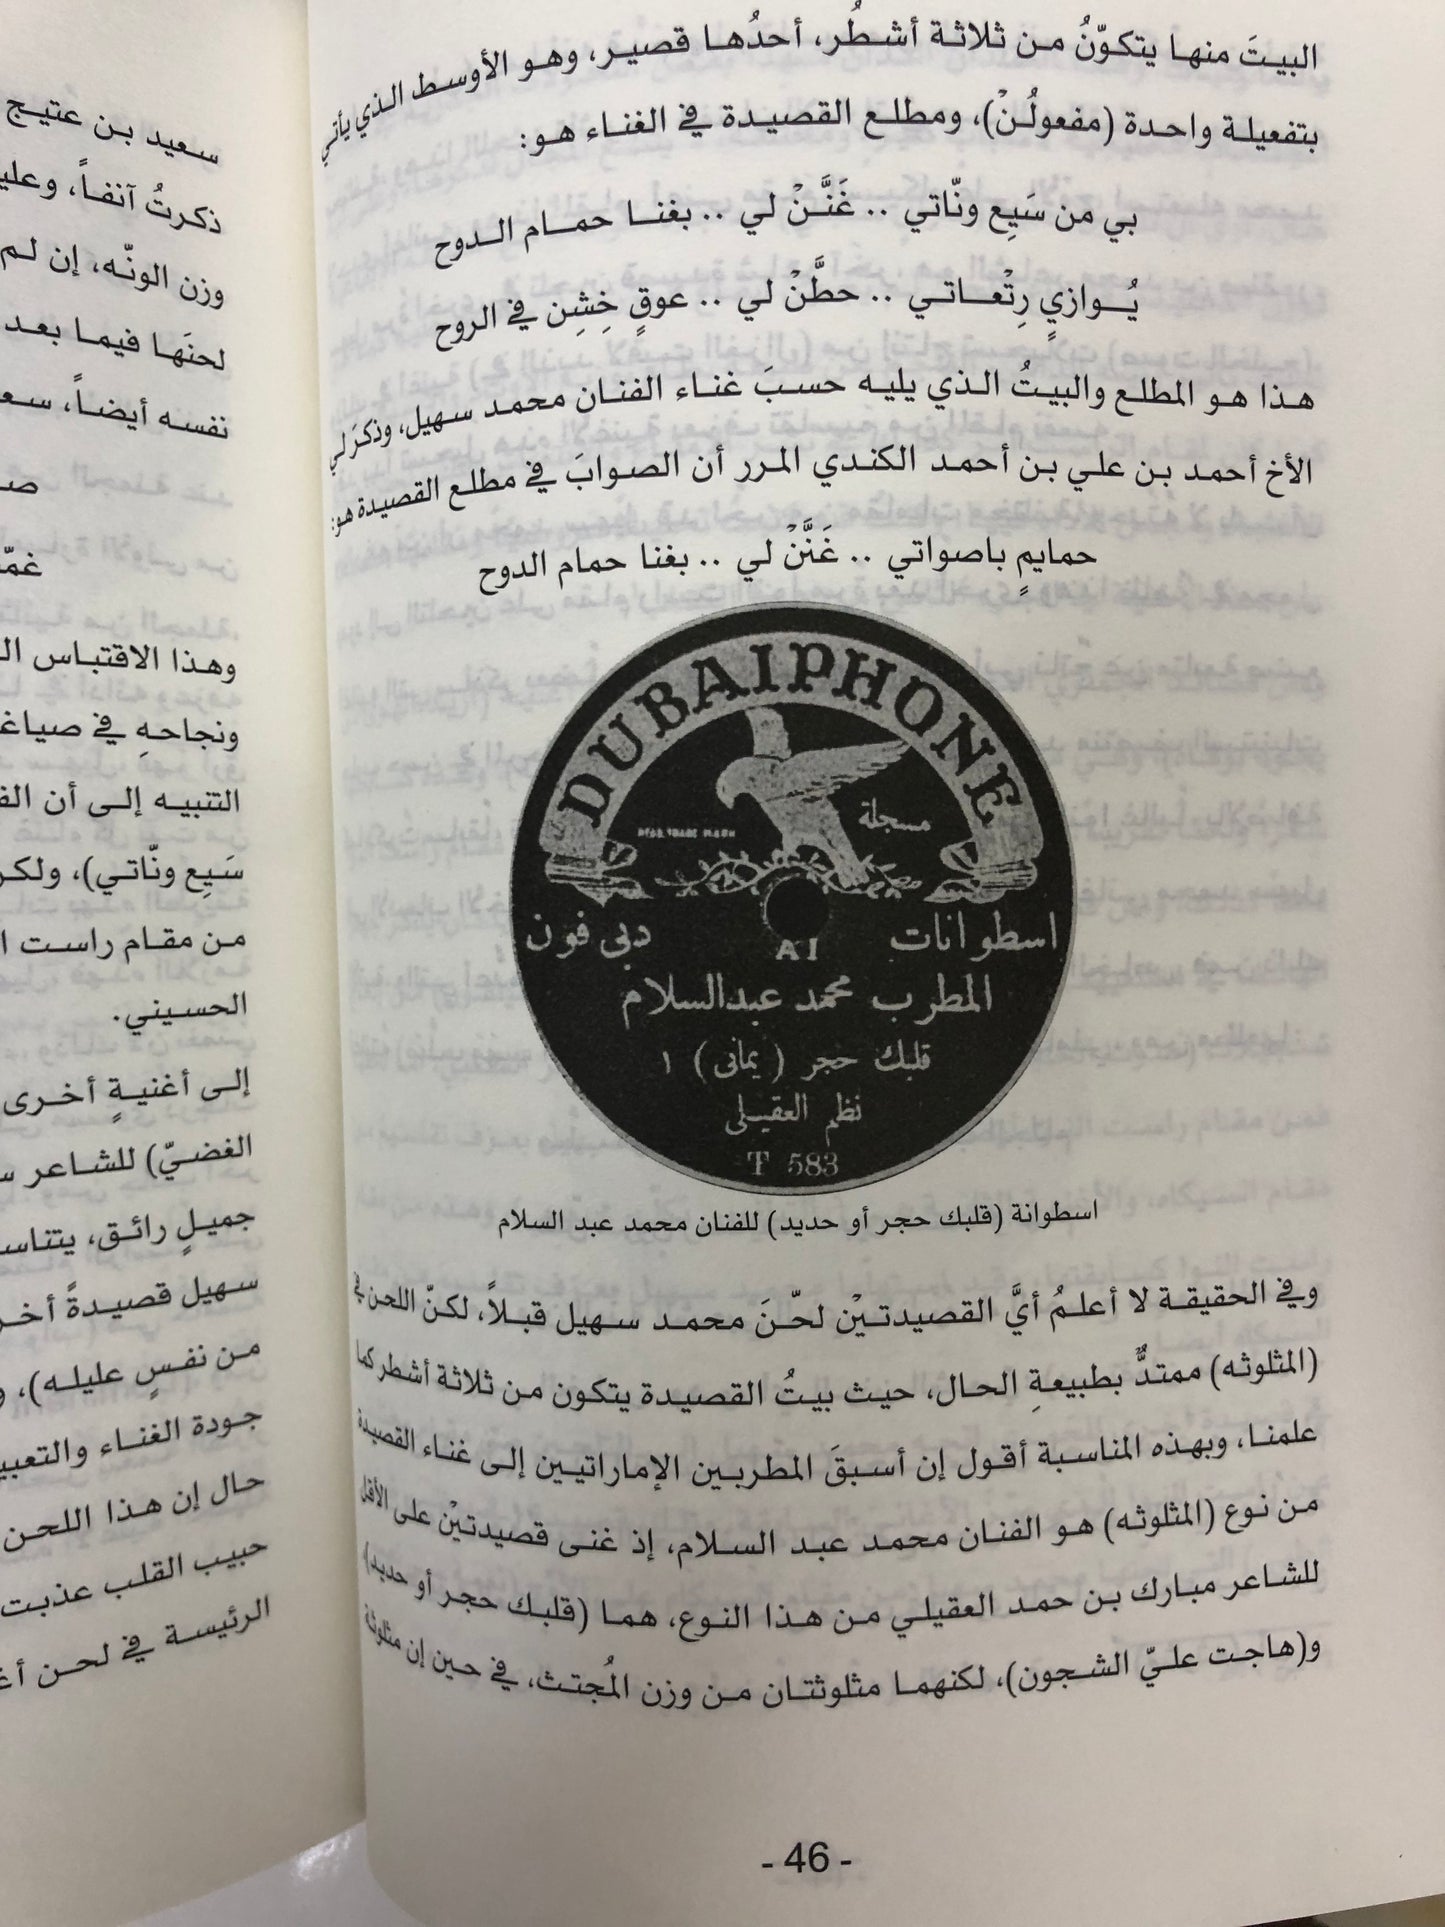 البيتَ منها يتكوّنُ من ثلاثة أشطُر، أحدُها قصير، وهو الأوسط الذي يأتي
بتفعيلة واحدة (مفعولُنْ)، ومطلع القصيدة في الغناء هو:
بي من سَيِع ونّاتي .. غَنَّنْ لي .. بغنا حمام الدوح
يُوازيٍ رِتْعاتي .. حطَّنْ لي .. عوقٍ خِشِن في الروح
هذا هو المطلع والبيتُ الذي يليه حسبَ غناء الفنان محمد سهيل، وذكرَ لي
الأخ أحمد بن علي بن أحمد الكندي المرر أن الصوابَ في مطلع القصيدة هو:
حمايمٍ باصواتي .. غَنَّنْ لي .. بغنا حمام الدوح
DUBAIPHONE
مسجلة
REGD TRADE MARK
اسطوانات دبي فون
A I
المطرب محمد عبدالسلام
قلبك حجر (يماني) ١
نظم العقيلي
T 583
اسطوانة (قلبك حجر أو حديد) للفنان محمد عبد السلام
وفي الحقيقة لا أعلمُ أيَّ القصيدتيْن لحّنَ محمد سهيل قبلاً، لكنّ اللحن في
(المثلوثه) ممتدٌّ بطبيعةِ الحال، حيث بيتُ القصيدة يتكون من ثلاثة أشطر كما
علمنا، وبهذه المناسبة أقول إن أسبقَ المطربين الإماراتيين إلى غناء القصيدة
من نوع (المثلوثه) هو الفنان محمد عبد السلام، إذ غنى قصيدتيْن على الأقل
للشاعر مبارك بن حمد العقيلي من هذا النوع، هما (قلبك حجر أو حديد)
و(هاجت عليّ الشجون)، لكنهما مثلوثتان من وزن المُجتث، في حين إن مثلوثة
- 46 -
سعيد بن عتيج
ذكرتُ آنفاً،
وزن الونّه، إن لم
لحنَها فيما بعد
نفسه أيضاً،
وهذا الاقتباس
ونجاحهِ في
التنبيه إلى أن
سَيِع ونّاتي)،
من مقام راست
الحسيني.
إلى أغنيةٍ أخرى
الغضيّ) للشاعر
جميلٍ رائق،
سهيل قصيدةً
من نفسٍ عليله)،
جودة الغناء
حال إن هذا اللحن
حبيب القلب عذبت
الرئيسة في لحن